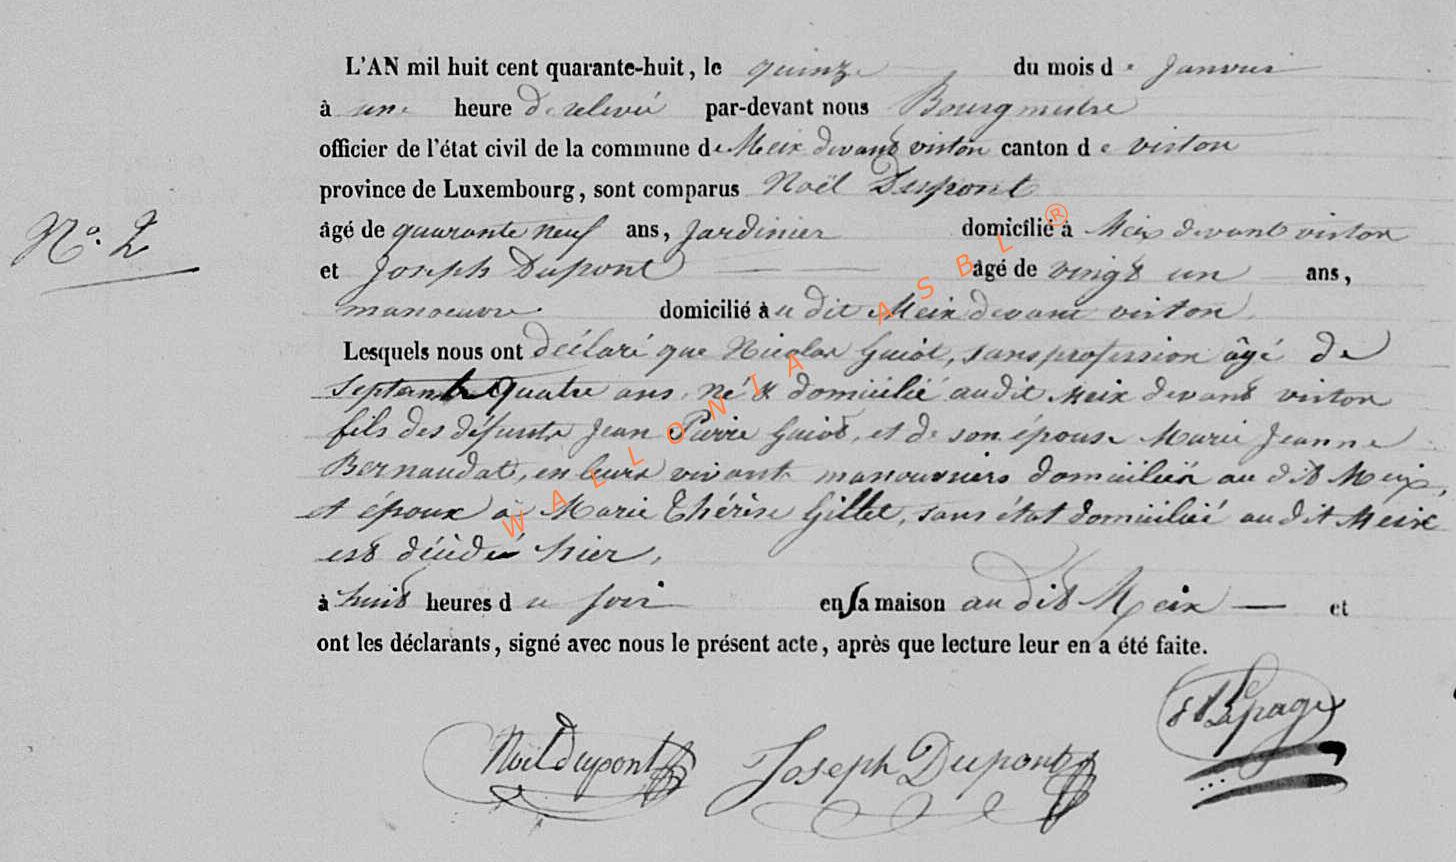 L'AN mil huit cent quarante-huit, le quinze du mois de Janvier
à une heure de relevée par-devant nous Bourgmestre
officier de l'état civil de la commune de Meix devant virton canton de virton
province de Luxembourg, sont comparus Noël Dupont
âgé de quarante neuf ans, Jardinier domicilié à Meix devant virton
N° 2
et Joseph Dupont âgé de vingt un ans,
manoeuvre domicilié au dit Meix devant virton
Lesquels nous ont déclaré que Nicolas Guiot, sans profession âgé de
Septante quatre ans, né & domicilié audit Meix devant virton
fils des défunts Jean Pierre Guiot, et de son épouse Marie Jeanne
Bernaudat, en leurs vivant manouvriers domiciliés au dit Meix,
et époux à Marie Thérèse Gillet, sans état domiciliée audit Meix
est décédé hier,
à huit heures du soir en sa maison au dit Meix — et
ont les déclarants, signé avec nous le présent acte, après que lecture leur en a été faite.
Lepage
Noël Dupont Joseph Dupont
WALLONIA ASBL ®